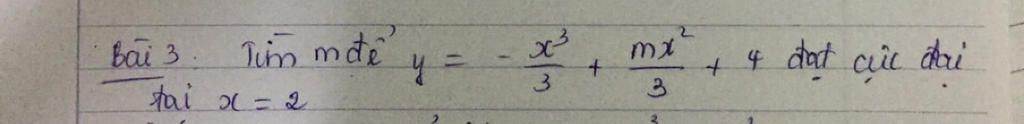 Bài 3: Tìm m để y = - x³/3 + mx²/3 + 4 đạt cực đại
tại x = 2